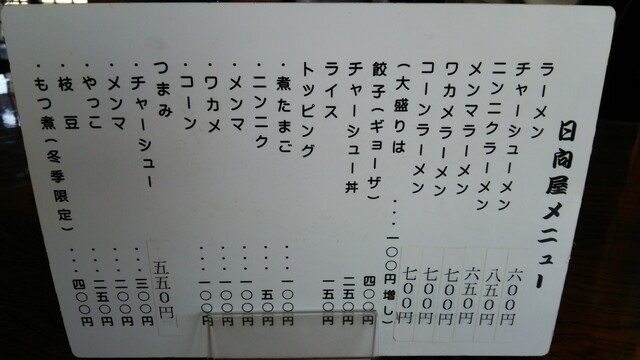 日向屋メニュー
ラーメン 六00円
チャーシューメン 八五0円
ニンニクラーメン 六五0円
メンマラーメン 七00円
ワカメラーメン 七00円
コーンラーメン 七00円
(大盛りは ・・・一〇〇円増し)
餃子(ギョーザ) 四〇〇円
チャーシュー丼 二五〇円
ライス 一五〇円
トッピング
・煮たまご ・・・一〇〇円
・ニンニク ・・・五〇円
・メンマ ・・・一〇〇円
・ワカメ ・・・一〇〇円
・コーン ・・・一〇〇円
つまみ
・チャーシュー 五五0円
・メンマ ・・・三〇〇円
・やっこ ・・・二〇〇円
・枝 豆 ・・・二五〇円
・もつ煮(冬季限定)・・・・四〇〇円